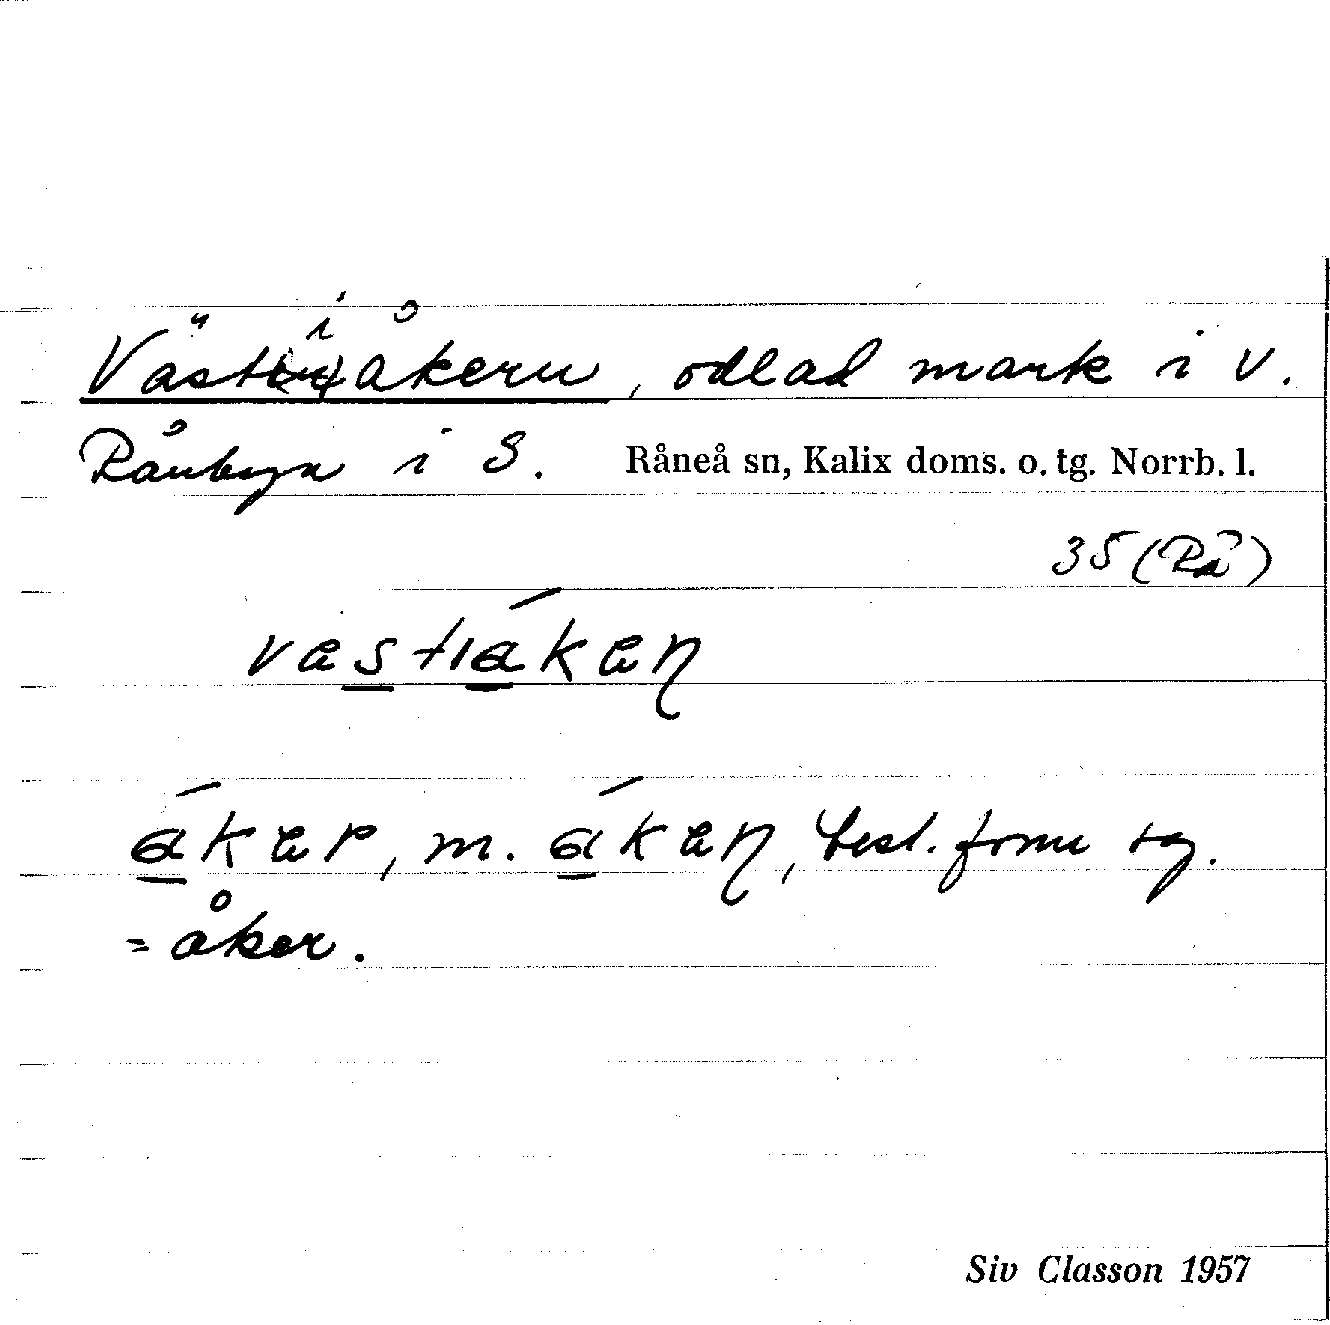 Västiåkern, odlad mark i V.
Rånbyn i S. Råneå sn, Kalix doms. o. tg. Norrb. l.
35 (Rå)
västıákæn
ákær, m. ákæn, best. form sg.
= åker.
Siv Classon 1957